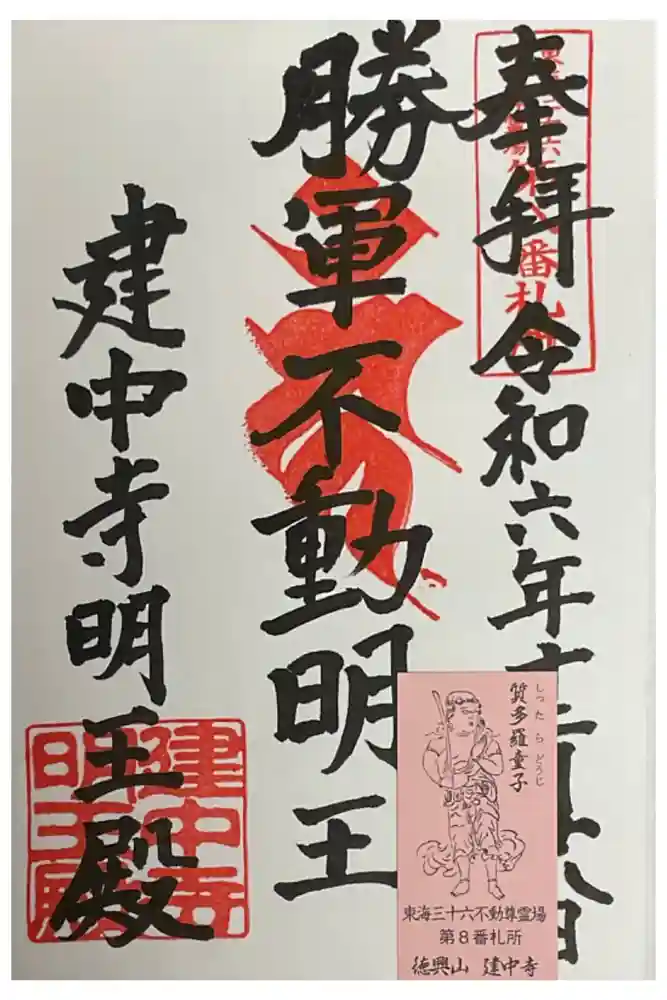 奉拝 令和六年十二月
第八番札所
勝軍不動明王
建中寺明王殿
建中寺
明王殿
質多羅童子
しったらどうじ
東海三十六不動尊霊場
第8番札所
徳興山 建中寺